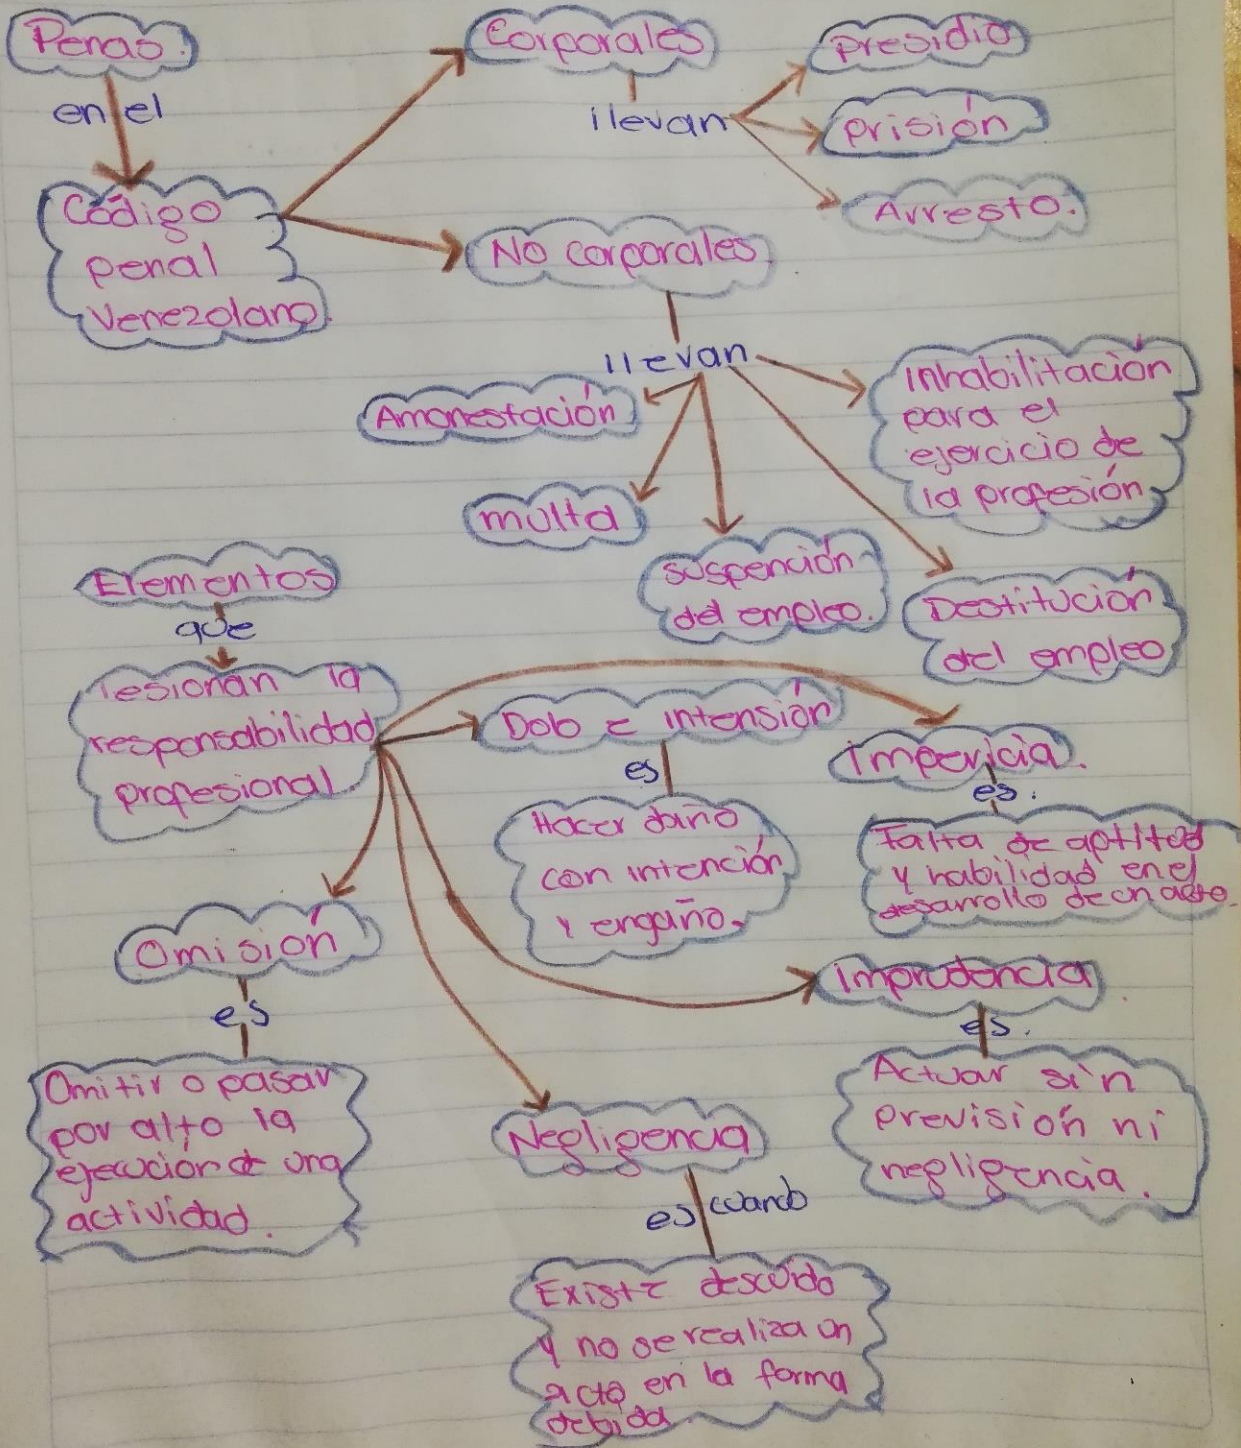 Penas.
en el
Código
penal
Venezolano
Corporales
llevan
presidio
prisión
Arresto.
No corporales
llevan
Amonestación
multa
suspención
del empleo.
Destitución
del empleo
Inhabilitación
para el
ejercicio de
la profesión
Elementos
que
lesionan la
responsabilidad
profesional
Dolo e intensión
es
Hacer daño
con intención
y engaño.
impericia.
es.
Falta de aptitud
y habilidad en el
desarrollo de un acto.
Omisión
es
Omitir o pasar
por alto la
ejecución de una
actividad.
Imprudencia
es.
Actuar sin
previsión ni
negligencia.
Negligencia
es cuando
Existe descuido
y no se realiza un
acto en la forma
debida.